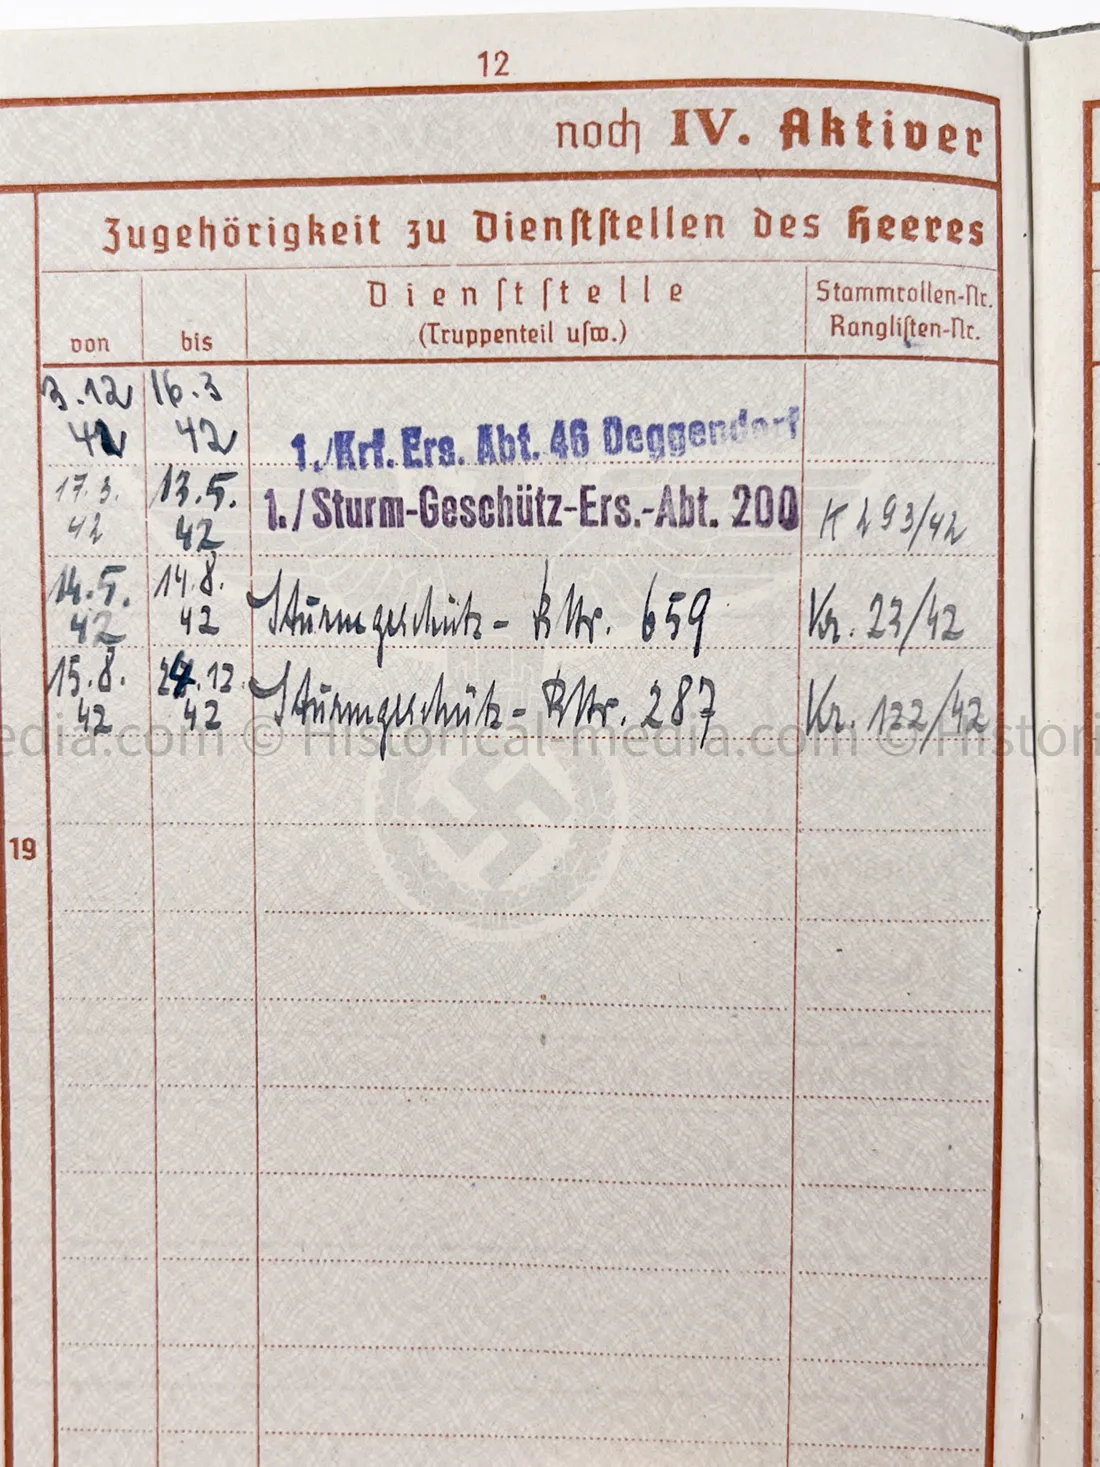 12
noch IV. Aktiver
Zugehörigkeit zu Dienststellen des Heeres
von
bis
Dienststelle
(Truppenteil usw.)
Stammrollen-Nr.
Ranglisten-Nr.
3.12 16.3
42
1./Krf. Ers. Abt. 46 Deggendorf
17.3. 13.5.
42 42
1./Sturm-Geschütz-Ers.-Abt. 200
K 293/42
14.5. 14.8.
42 42
Sturmgeschütz- Bttr. 659
Kr. 23/42
15.8. 24.12.
42 42
Sturmgeschütz- Bttr. 287
Kr. 122/42
edia.com © Historical-media.com © Histori
19